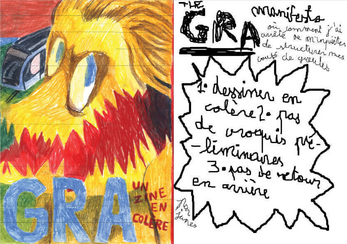 GRA
UN
ZINE
EN
COLÈRE
THE
GRA manifesto
où comment j'ai
arrêté de m'inquiéter
de structurer mes
coups de gueules
1. dessiner en
colère 2. pas
de croquis pré
-liminaires
3. pas de retour
en arrière